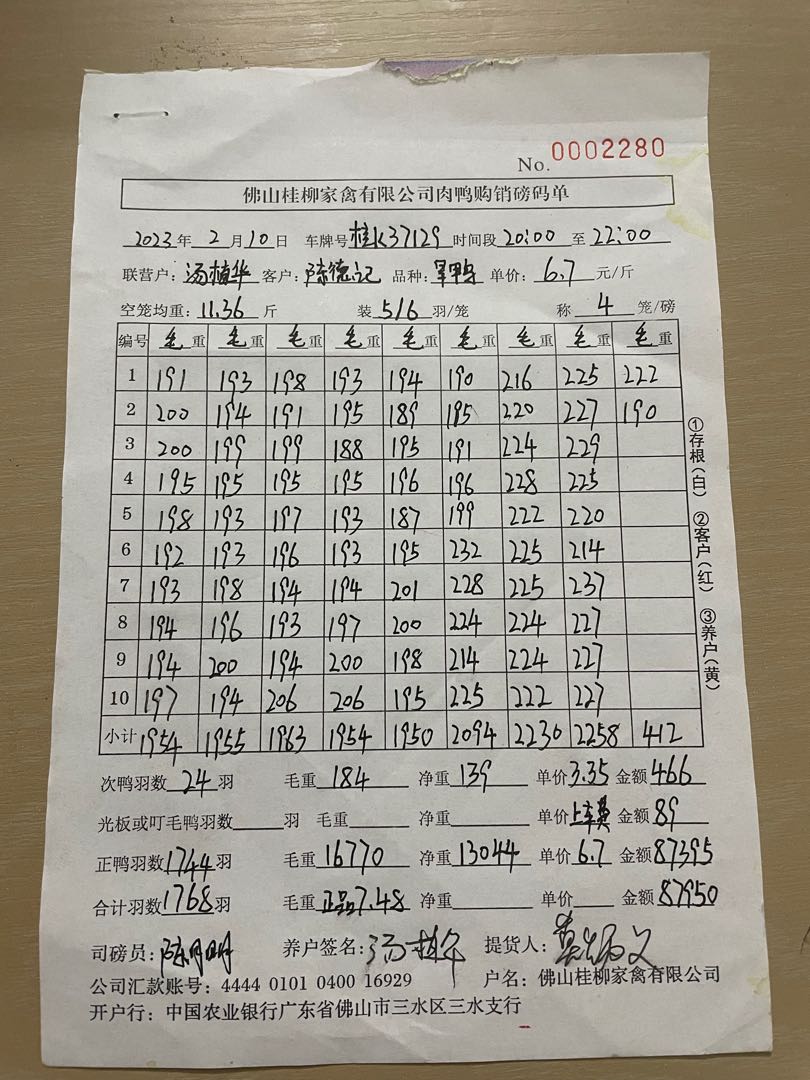 No. 0002280
佛山桂柳家禽有限公司肉鸭购销磅码单
2023年 2 月 10 日 车牌号 桂K37129 时间段 20:00 至 22:00
联营户: 汤植华 客户: 陈德记 品种: 鸭 单价: 6.7 元/斤
空笼均重: 11.36 斤 装 5/6 羽/笼 称 4 笼/磅
编号 毛重 毛重 毛重 毛重 毛重 毛重 毛重 毛重 毛重
1 191 193 198 193 194 190 216 225 222
2 200 194 191 195 189 195 220 227 190
3 200 199 199 188 195 191 224 229
4 195 195 195 195 196 196 228 225
5 198 193 197 193 187 199 222 220
6 192 193 196 193 195 232 225 214
7 193 198 194 194 201 228 225 237
8 194 196 193 197 200 224 224 227
9 194 200 194 200 198 214 224 227
10 197 194 206 206 195 225 222 227
小计 1954 1955 1963 1954 1950 2094 2230 2258 412
①存根(白) ②客户(红) ③养户(黄)
次鸭羽数 24 羽 毛重 184 净重 139 单价 3.35 金额 466
光板或叮毛鸭羽数 羽 毛重 净重 单价 上车费 金额 89
正鸭羽数 1744 羽 毛重 16770 净重 13044 单价 6.7 金额 87395
合计羽数 1768 羽 毛重 正品7.48 净重 单价 金额 87950
司磅员: 陈明 养户签名: 汤植华 提货人:
公司汇款账号: 4444 0101 0400 16929 户名: 佛山桂柳家禽有限公司
开户行: 中国农业银行广东省佛山市三水区三水支行